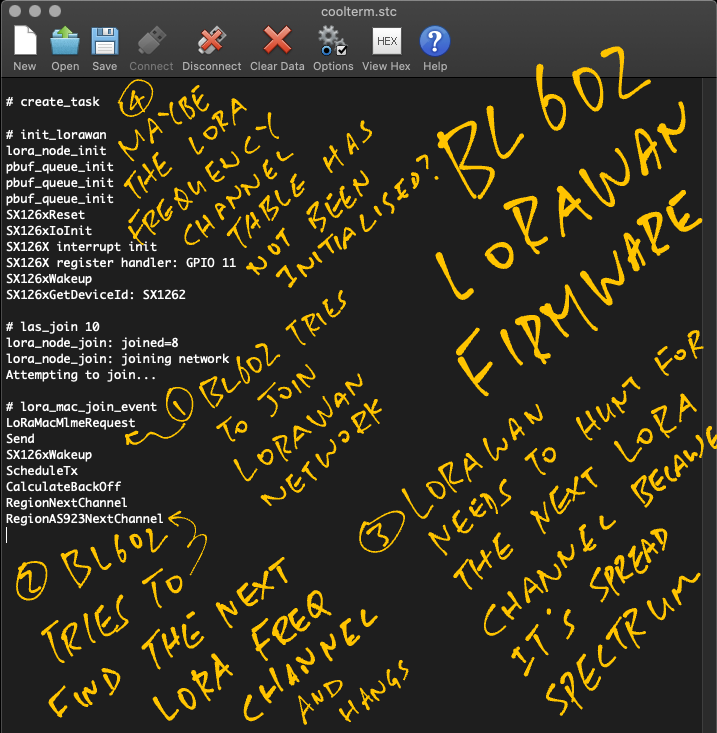 coolterm.stc
New Open Save Connect Disconnect Clear Data Options View Hex Help
HEX
# create_task
# init_lorawan
lora_node_init
pbuf_queue_init
pbuf_queue_init
pbuf_queue_init
SX126xReset
SX126xIoInit
SX126X interrupt init
SX126X register handler: GPIO 11
SX126xWakeup
SX126xGetDeviceId: SX1262
# las_join 10
lora_node_join: joined=8
lora_node_join: joining network
Attempting to join...
# lora_mac_join_event
LoRaMacMlmeRequest
Send
SX126xWakeup
ScheduleTx
CalculateBackOff
RegionNextChannel
RegionAS923NextChannel
BL602
LORAWAN
FIRMWARE
1 BL602 TRIES
TO JOIN
LORAWAN
NETWORK
2 BL602
TRIES TO
FIND THE NEXT
LORA FREQ
CHANNEL
AND
HANGS
3 LORAWAN
NEEDS TO HUNT FOR
THE NEXT LORA
CHANNEL BECAUSE
IT'S SPREAD
SPECTRUM
4 MAYBE
THE LORA
FREQUENCY
CHANNEL
TABLE HAS
NOT BEEN
INITIALISED?